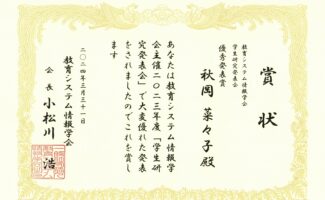 賞状
教育システム情報学会
学生研究発表会
優秀発表賞
秋岡 菜々子 殿
あなたは教育システム情報学
会主催二〇二三年度「学生研
究発表会」で大変優れた発表
をされましたのでこれを賞し
ます
二〇二四年三月三十一日
教育システム情報学会
会長 小松川 浩